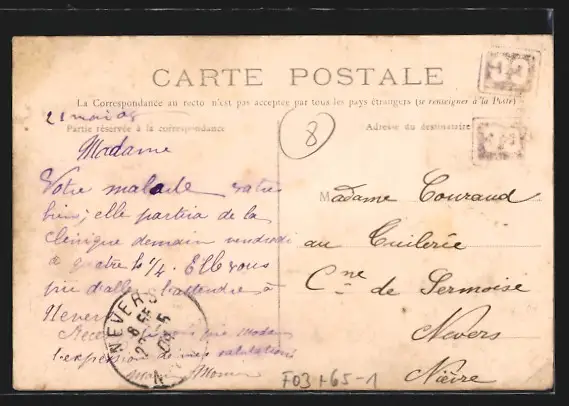 CARTE POSTALE
La Correspondance au recto n'est pas acceptée par tous les pays étrangers (se renseigner à la Poste)
21 mai 08
Partie réservée à la correspondance
Madame
Votre malade va très
bien; elle partira de la
clinique demain vendredi
à quatre h ¼. Elle vous
prie d'aller l'attendre à
Nevers
Madame
l'expression de mes salutations
8
Adresse du destinataire
Madame Couraud
au Tuilerie
Cne de Sermoise
Nevers
Nièvre
NEVERS
F03765-1